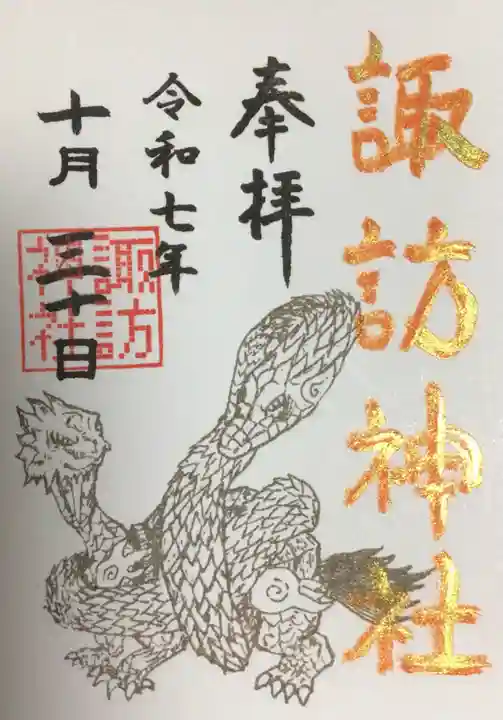 諏訪神社
奉拝
令和七年
十月三十日
諏訪
神社